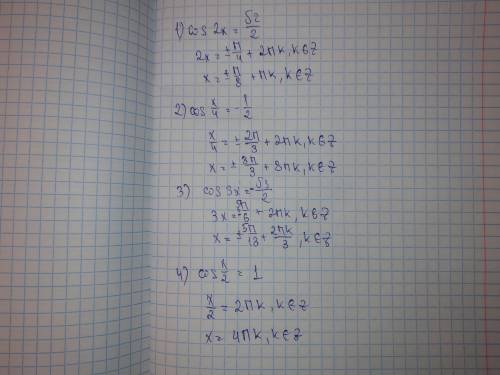 1) cos 2x = √2/2
2x = ± π/4 + 2πk, k∈Z
x = ± π/8 + πk, k∈Z
2) cos x/4 = -1/2
x/4 = ± 2π/3 + 2πk, k∈Z
x = ± 8π/3 + 8πk, k∈Z
3) cos 3x = -√3/2
+ 2πk, k∈Z
x = ± 5π/18 + 2πk/3, k∈Z
4) cos x/2 = 1
x/2 = 2πk, k∈Z
x = 4πk, k∈Z